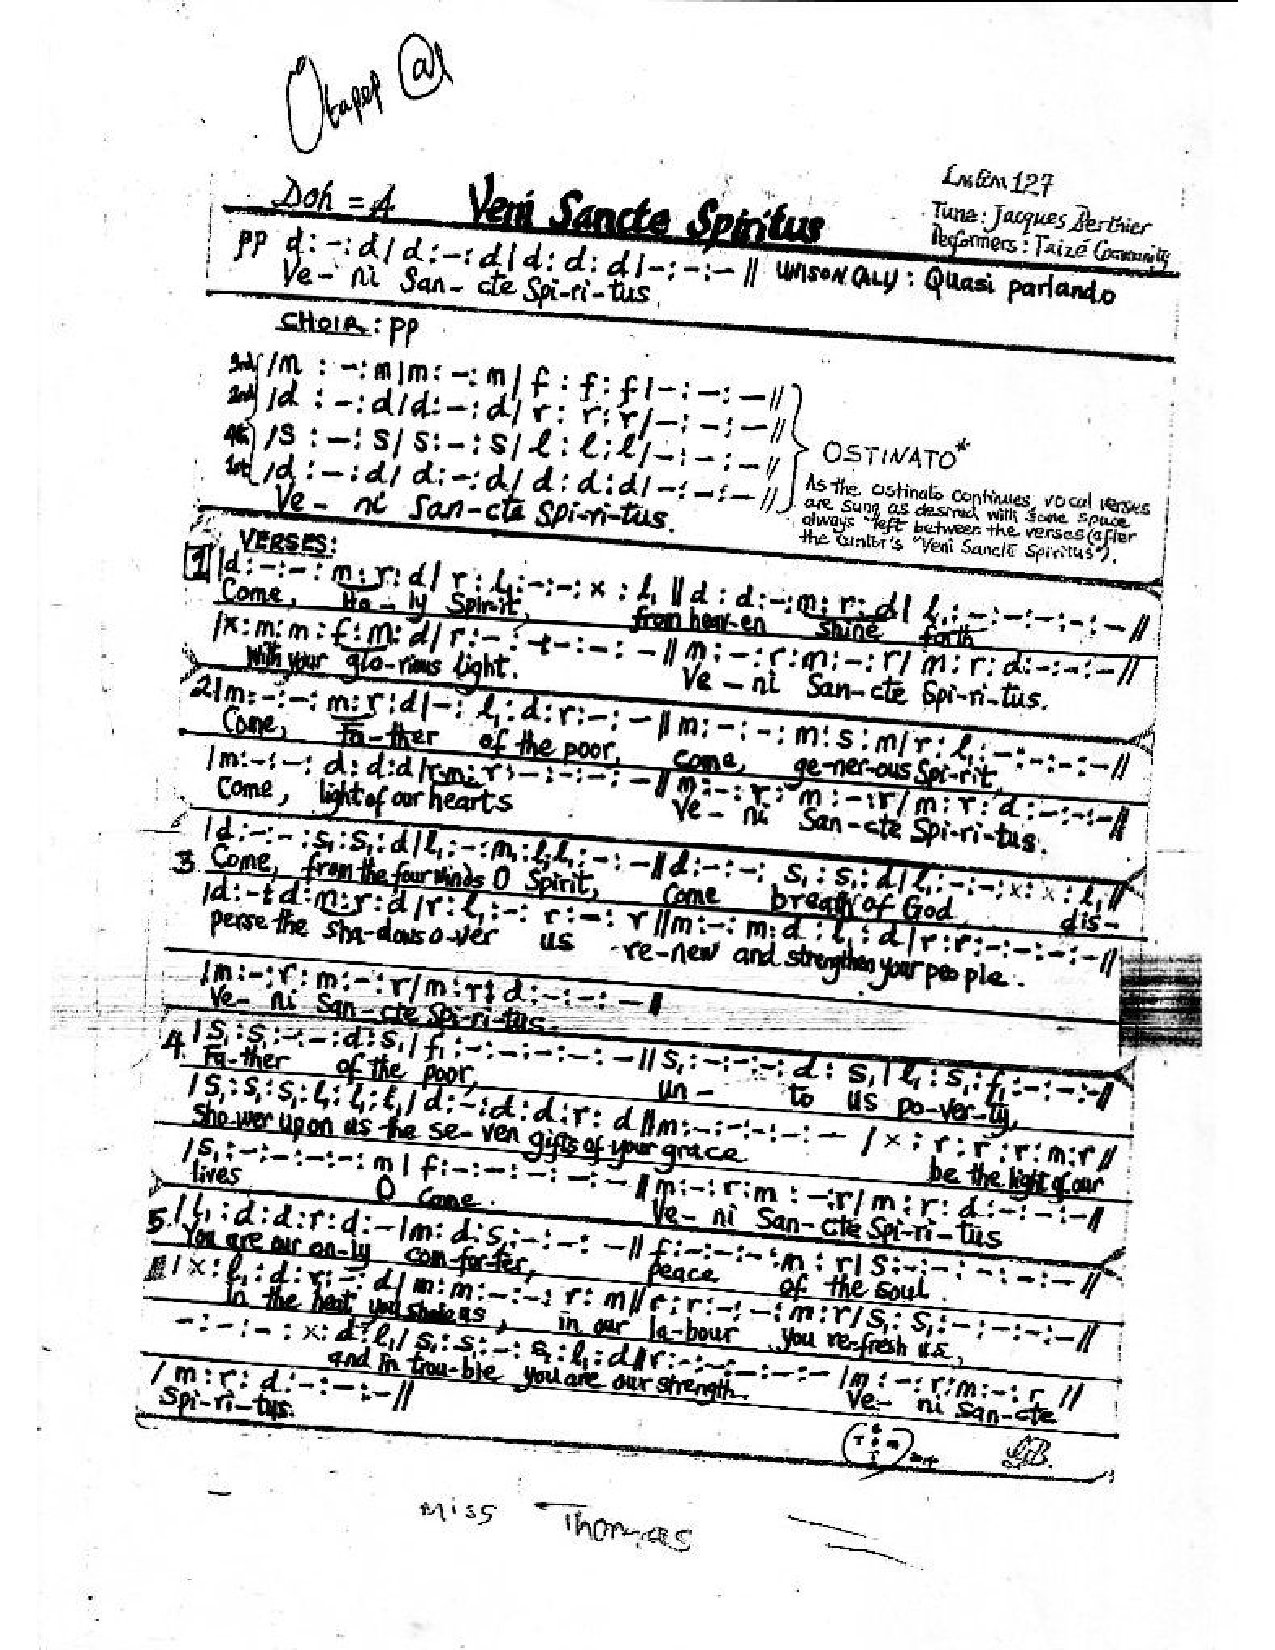 Doh = A Veni Sancte Spiritus
127
Tune: Jacques Berthier
Performers: Taizé Community
pp d:-:d/d:-:d/d:d:d/-:-:-// UNISON ONLY: Quasi parlando
Ve- ni San-cte Spi-ri-tus
CHOIR: pp
3rd /m:-:m/m:-:m/f:f:f/-:-:-//
2nd /d:-:d/d:-:d/r:r:r/-:-:-//
4th /s:-:s/s:-:s/l:l:l/-:-:-//
1st /d:-:d/d:-:d/d:d:d/-:-:-//
Ve- ni San-cte Spi-ri-tus.
OSTINATO*
As the ostinato continues, vocal verses
are sung as desired with some space
always left between the verses (after
the cantor's "Veni Sancte Spiritus").
VERSES:
1 /d:-:-:m:r:d/r:l₁:-:-:x:l₁//d:d:-:m:r:d/l₁:-:-:-:-:-//
Come, Ho-ly Spirit, from heav-en shine forth
/x:m:m:f:m:d/r:-:-:-:-:-//m:-:r:m:-:r/m:r:d:-:-:-//
With your glo-rious light. Ve-ni San-cte Spi-ri-tus.
2 /m:-:-:m:r:d/-:l₁:d:r:-:-//m:-:-:m:s:m/r:l₁:-:-:-:-//
Come, Fa-ther of the poor, come, ge-ner-ous Spi-rit,
/m:-:-:d:d:d/r:m:r:-:-:-:-//m:-:r:m:-:r/m:r:d:-:-:-//
Come, light of our hearts Ve-ni San-cte Spi-ri-tus.
/d:-:-:s₁:s₁:d/l₁:-:m₁:l₁:l₁:-:-//d:-:-:s₁:s₁:d/l₁:-:-:x:x:l₁//
3 Come, from the four winds O Spirit, come breath of God dis-
/d:-:d:m:r:d/r:l₁:-:r:-:r//m:-:m:d:l₁:d/r:r:-:-:-:-//
perse the sha-dows o-ver us re-new and strengthen your people.
/m:-:r:m:-:r/m:r:d:-:-:-//
Ve- ni San-cte Spi-ri-tus.
4. /s₁:s₁:-:-:d:s₁/f₁:-:-:-:-:-//s₁:-:-:-:d:s₁/l₁:s₁:f₁:-:-:-//
Fa-ther of the poor, un- to us po-ver-ty,
/s₁:s₁:s₁:l₁:l₁:l₁/d:-:d:d:r:d//m:-:-:-:-:-/x:r:r:r:m:r//
Sho-wer upon us the se-ven gifts of your grace be the light of our
/s₁:-:-:-:-:m/f:-:-:-:-:-//m:-:r:m:-:r/m:r:d:-:-:-//
lives O come. Ve-ni San-cte Spi-ri-tus
5. /l₁:d:d:r:d:-/m:d:s₁:-:-:-//f:-:-:-:m:r/s:-:-:-:-:-//
You are our on-ly com-for-ter, peace of the soul
/x:l₁:d:r:-:d/m:m:-:-:r:m//r:r:-:-:m:r/s₁:s₁:-:-:-:-//
In the heat you shade us, in our la-bour you re-fresh us,
-:-:-:x:d:l₁/s₁:s₁:-:s₁:l₁:d//r:-:-:-:-:-/m:-:r:m:-:r//
and in trou-ble you are our strength. Ve- ni San-cte
/m:r:d:-:-:-//
Spi-ri-tus.
Miss Thomas